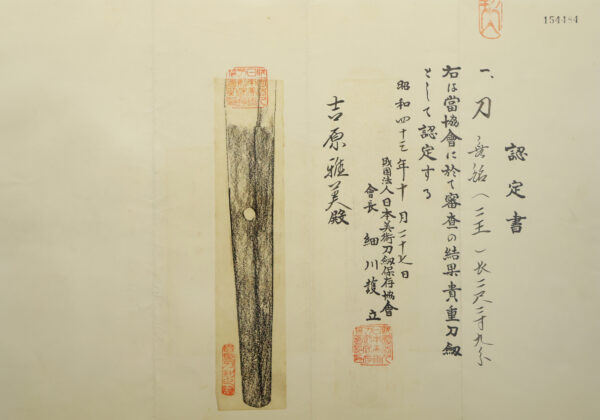 154484
認定書
一、刀 無銘（二王）長二尺二寸九分
右は當協會に於て審査の結果貴重刀劔
として認定する
昭和四十三年十月二十七日
財団法人日本美術刀劔保存協會
會長 細川護立
吉原雅美殿